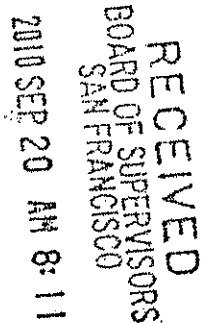 RECEIVED
BOARD OF SUPERVISORS
SAN FRANCISCO
2010 SEP 20 AM 8:11